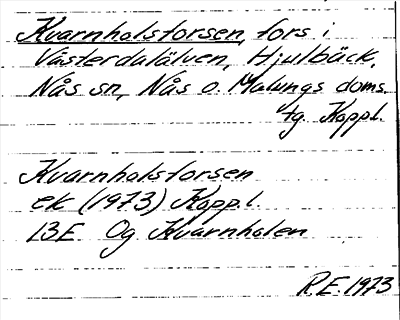 Kvarnholsforsen, fors i
Västerdalälven, Hjulbäck,
Nås sn, Nås o. Malungs doms.
tg. Koppl.
Kvarnholsforsen
ek (1973) Koppl.
13E Og Kvarnholen
R.E. 1973